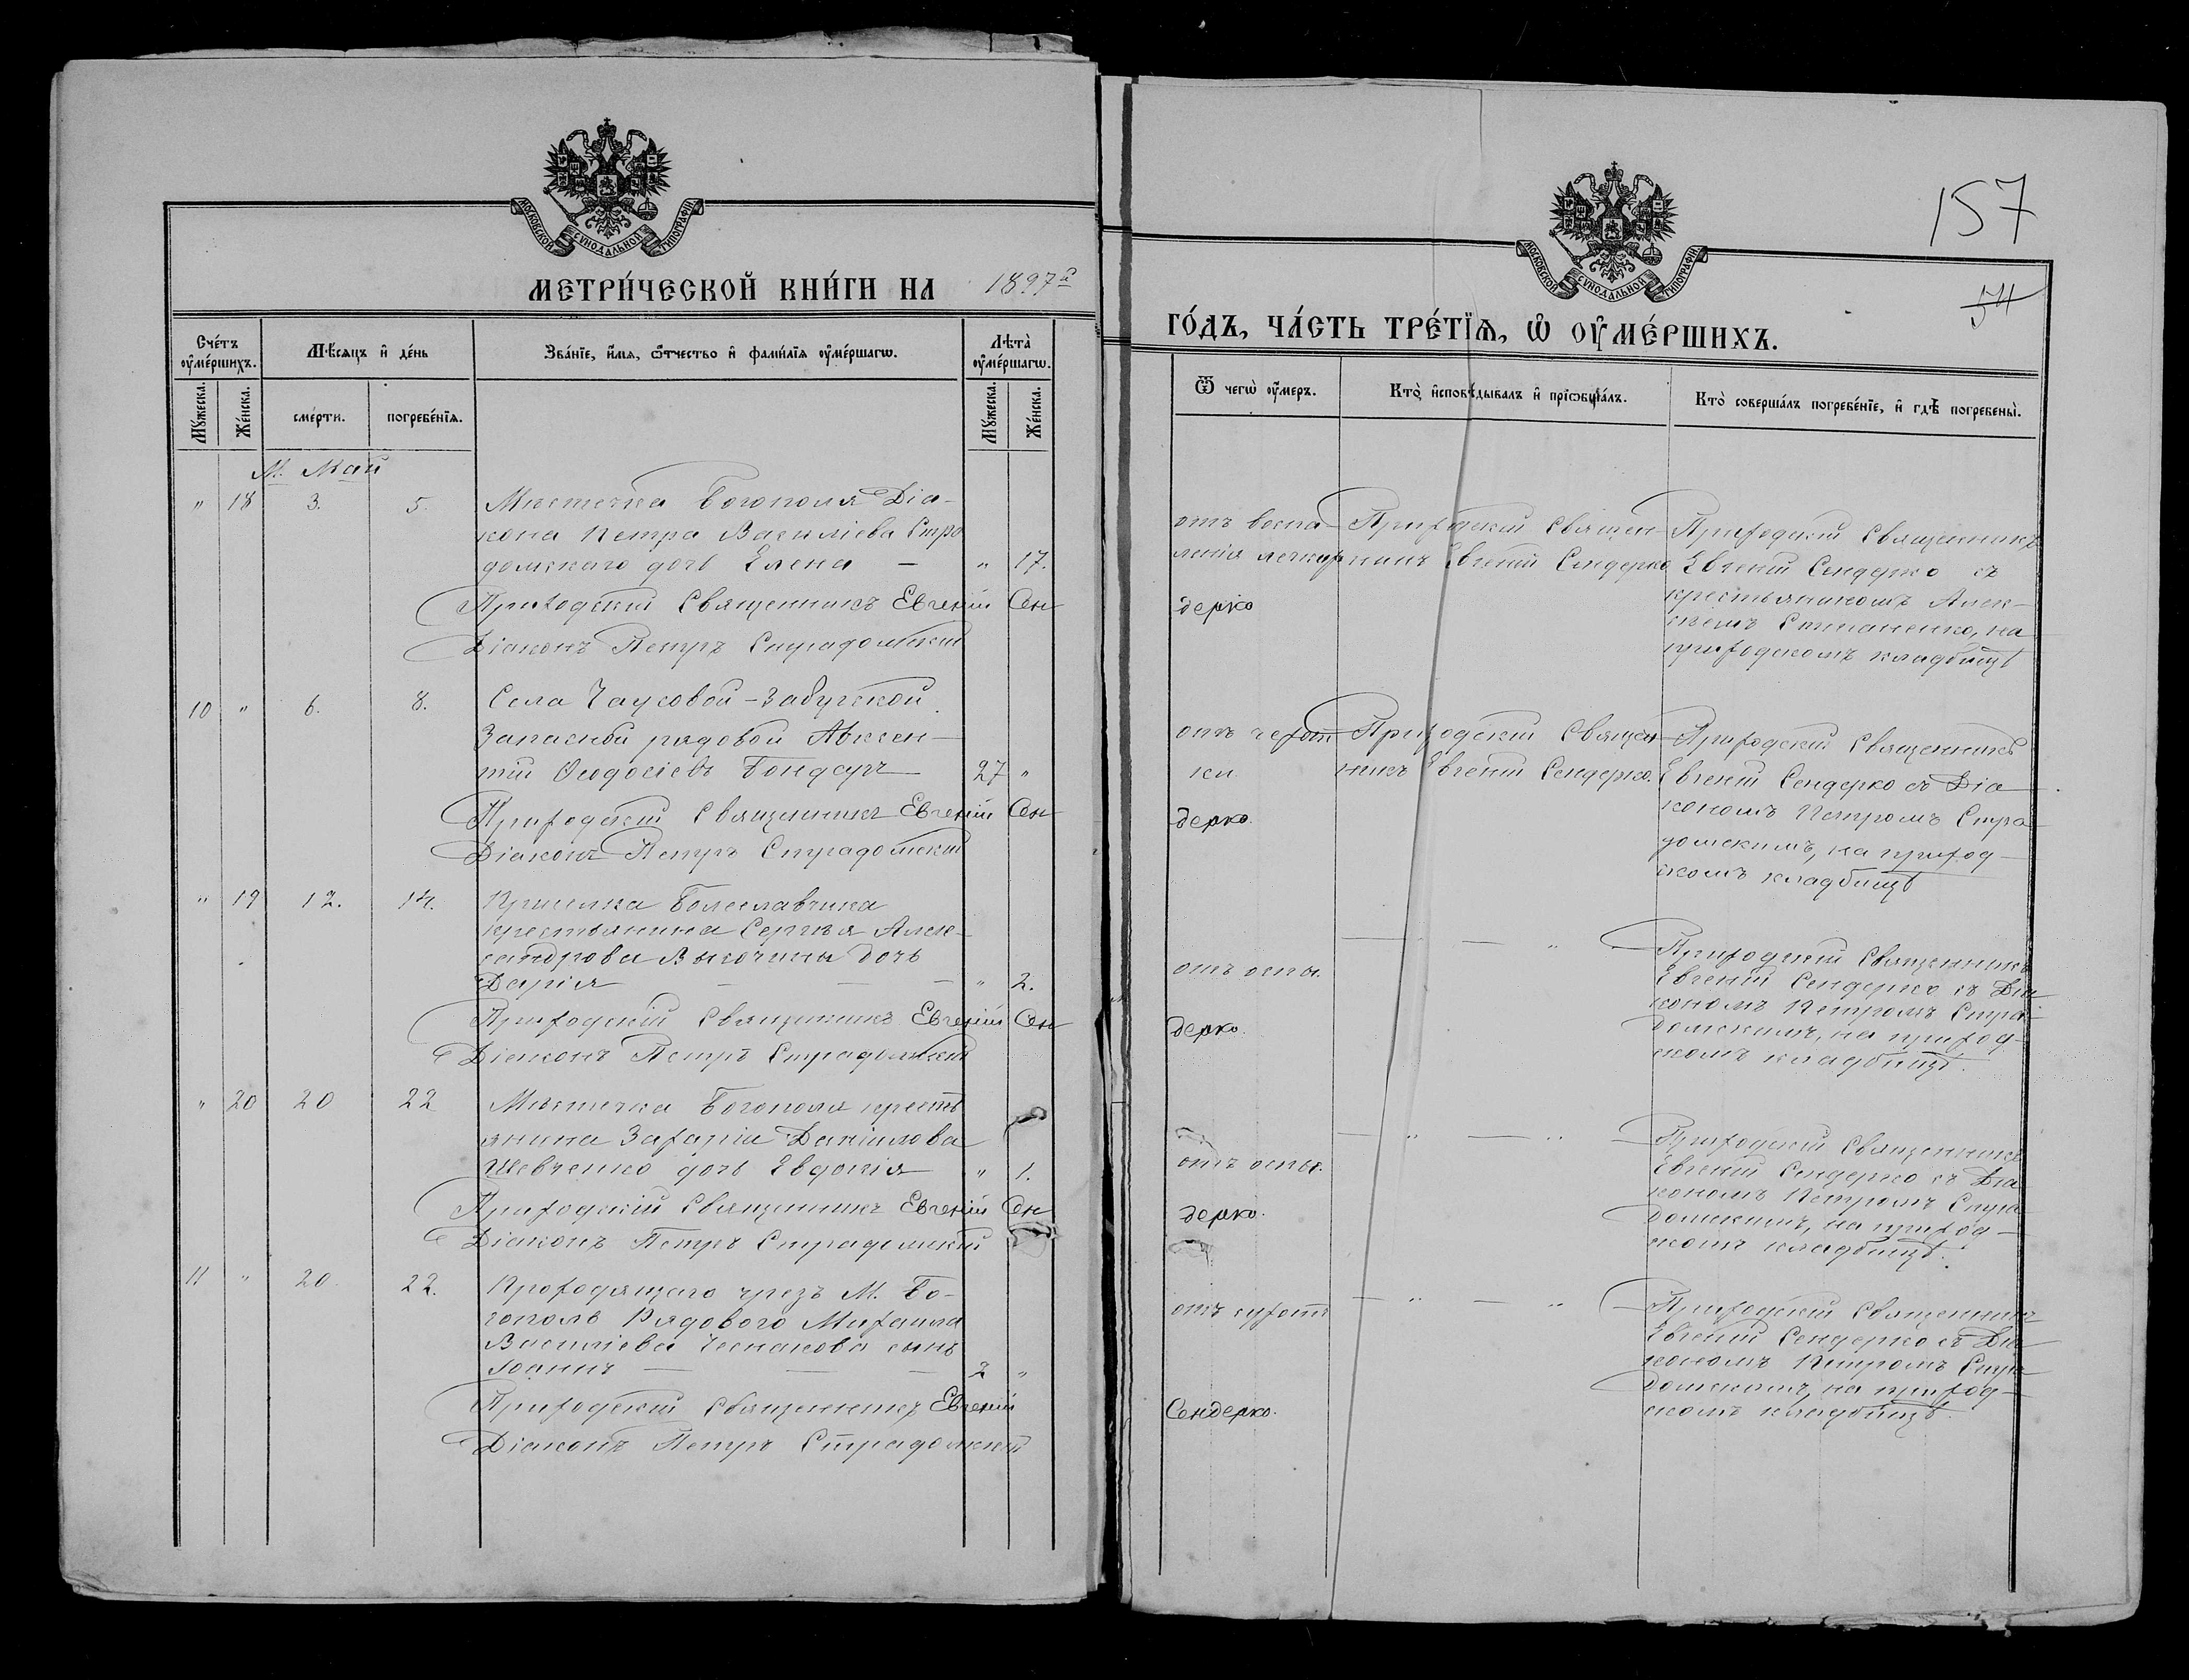 МОСКОВСКОЙ СУНОДАЛЬНОЙ ТИПОГРАФІИ
МЕТРИ́ЧЕСКОЙ КНИ́ГИ НА 1897й
Сче́тъ ᲂу҆ме́ршихъ.
Мꙋ́жеска.
Же́нска.
Мѣ́сяцъ и҆ де́нь
сме́рти.
погребе́нїя.
Зва́нїе, и҆́мя, ѻ҆́тчество и҆ фами́лїя ᲂу҆ме́ршагѡ.
Лѣ́та ᲂу҆ме́ршагѡ.
Мꙋ́жеска.
Же́нска.
М. Май
" 18 3. 5. Мѣстечка Богополя Діа-
кона Петра Василіева Стра
домскаго дочь Елена — " 17.
Приходскій Священникъ Евгеній Сен
Діаконъ Петръ Страдомскій
10 " 6. 8. Села Чаусовой-Забугской
Запасной рядовой Авксен-
тій Ѳеодосіевъ Бондарь 27 "
Приходскій Священникъ Евгеній Сен
Діаконъ Петръ Страдомскій
" 19 12. 14. Приселка Болеславчика
крестьянина Сергѣя Алек-
сандрова Высочина дочь
Дарія — — — " 2.
Приходскій Священникъ Евгеній Сен
Діаконъ Петръ Страдомскій
" 20 20 22 Мѣстечка Богополя кресть
янина Захарія Даніилова
Шевченко дочь Евдокія " 1.
Приходскій Священникъ Евгеній Сен
Діаконъ Петръ Страдомскій
11 " 20 22. Проходящаго чрезъ М. Бо-
гополь Рядового Михаила
Василіева Чеснакова сынъ
Іоаннъ — — — 2 "
Приходскій Священникъ Евгеній
Діаконъ Петръ Страдомскій
157
54
МОСКОВСКОЙ СУНОДАЛЬНОЙ ТИПОГРАФІИ
ГО́ДЪ, ЧА́СТЬ ТРЕ́ТЇЯ, Ѡ҆ ОУ҆МЕ́РШИХЪ.
Ѿ чегѡ̀ ᲂу҆́меръ.
Кто̀ и҆сповѣ́дывалъ и҆ прїѡбща́лъ.
Кто̀ соверша́лъ погребе́нїе, и҆ гдѣ̀ погребены̀.
отъ воспа- Приходскій Священ- Приходскій Священникъ
ленія легкихъ никъ Евгеній Сендерко Евгеній Сендерко съ
дерко
крестьяниномъ Алек-
сѣемъ Степаненко, на
приходскомъ кладбищѣ
отъ чахот Приходскій Священ- Приходскій Священникъ
ки. никъ Евгеній Сендерко. Евгеній Сендерко съ Діа
дерко.
кономъ Петромъ Стра-
домскимъ, на приход-
скомъ кладбищѣ
отъ оспы. — — " Приходскій Священникъ
Евгеній Сендерко съ Діа
дерко.
кономъ Петромъ Стра-
домскимъ, на приход-
скомъ кладбищѣ.
отъ оспы. — " — " Приходскій Священникъ
Евгеній Сендерко съ Діа
дерко.
кономъ Петромъ Стра
домскимъ, на приход-
скомъ кладбищѣ.
отъ сухотъ — " — " Приходскій Священникъ
Евгеній Сендерко съ Діа
кономъ Петромъ Стра
домскимъ, на приход-
Сендерко.
скомъ кладбищѣ.